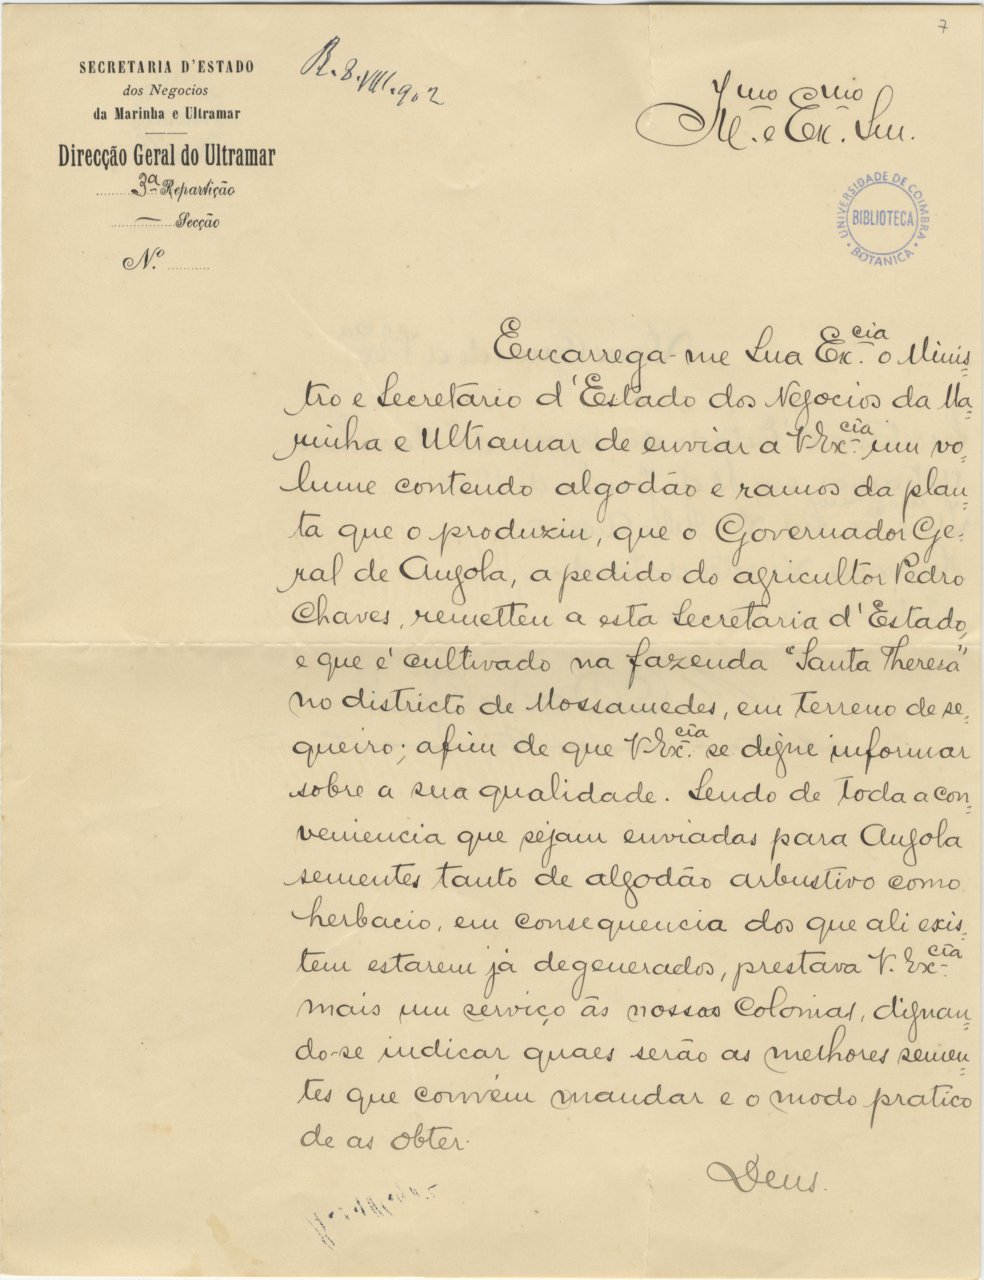 7
SECRETARIA D'ESTADO
dos Negocios
da Marinha e Ultramar
Direcção Geral do Ultramar
3ª Repartição
— Secção
N.º
R. 8. VIII. 902
Illmo e Exmo Snr.
UNIVERSIDADE DE COIMBRA
BIBLIOTECA
BOTANICA
Encarrega-me Sua Excia o Minis=
tro e Secretario d'Estado dos Negocios da Ma=
rinha e Ultramar de enviar a V. Excia um vo=
lume contendo algodão e ramos da plan=
ta que o produziu, que o Governador Ge=
ral de Angola, a pedido do agricultor Pedro
Chaves, remetteu a esta Secretaria d'Estado,
e que é cultivado na fazenda "Santa Theresa"
no districto de Mossamedes, em terreno de se=
queiro; afim de que V. Excia se digne informar
sobre a sua qualidade. Sendo de toda a con=
veniencia que sejam enviadas para Angola
sementes tanto de algodão arbustivo como
herbacio, em consequencia dos que ali exis=
tem estarem já degenerados, prestava V. Excia
mais um serviço ás nossas Colonias, dignan=
do-se indicar quaes serão as melhores semen=
tes que convém mandar e o modo pratico
de as obter.
Deus.